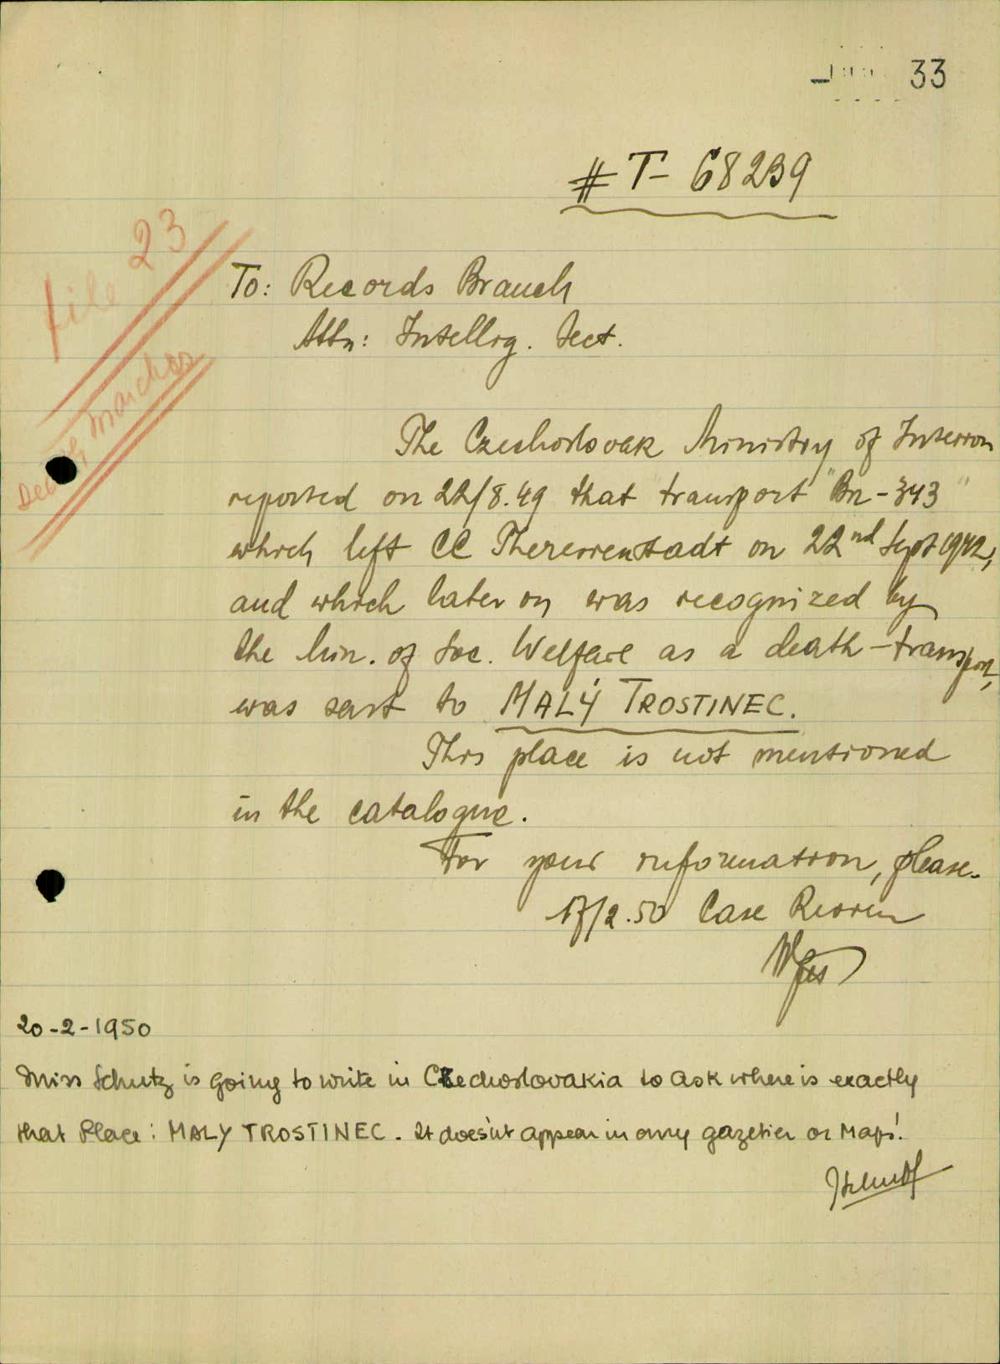 33
# T- 68239
file 23
Death Marches
To: Records Branch
Attn: Intellig. Sect.
The Czechoslovak Ministry of Interior
reported on 22/8.49 that transport "Bn-343"
which left CC Theresienstadt on 22nd Sept 1942,
and which later on was recognized by
the Min. of Soc. Welfare as a death-transport,
was sent to MALÝ TROSTINEC.
This place is not mentioned
in the catalogue.
For your information, please.
17/2.50 Case Review
20-2-1950
Miss Schutz is going to write in Czechoslovakia to ask where is exactly
that place: MALY TROSTINEC. It does'nt appear in any gazetier or Maps!